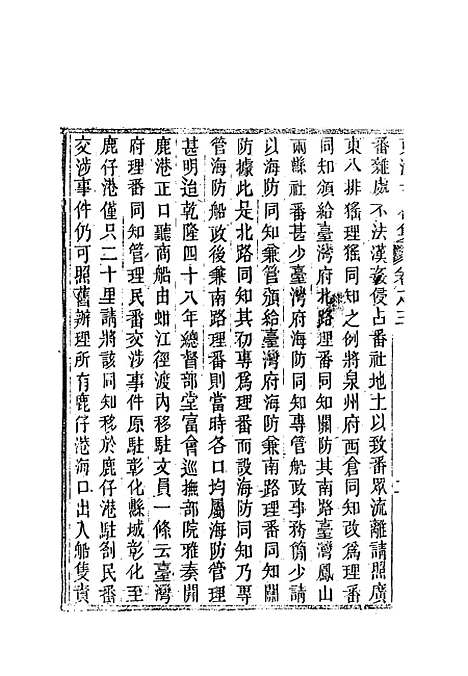 番雜處不法漢奸侵占番社地土以致番眾流離請照廣
東八排猺理猺同知之例將泉州府西倉同知改爲理番
同知頒給臺灣府北路理番同知關防其南路臺灣鳳山
兩縣社番甚少臺灣府海防同知專管船政事務簡少請
以海防同知兼管頒給臺灣府海防兼南路理番同知關
防據此是北路同知其初專爲理番而設海防同知乃專
管海防船政後兼南路理番則當時各口均屬海防管理
甚明迨乾隆四十八年總督部堂富會巡撫部院雅奏開
鹿港正口聽商船由蚶江徑渡內移駐文員一條云臺灣
府理番同知管理民番交涉事件原駐彰化縣城彰化至
鹿仔港僅只二十里請將該同知移於鹿仔港駐劄民番
交涉事件仍可照舊辦理所有鹿仔港海口出入船隻責